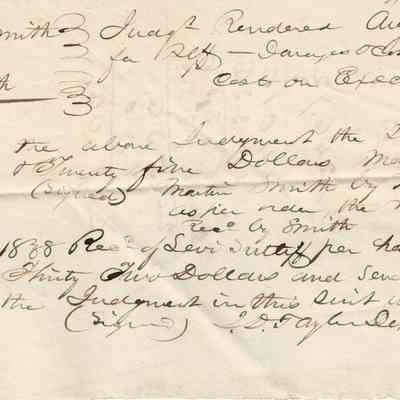 Smith } Judgt Rendered Au
for Plff — Damages & Cos
th } Costs on Exec
the above Judgment the
& Twenty five Dollars
(Signed) Martin Smith by
as per order the
Recd by Smith
1838 Recd of Levi Sutliff per ha
Thirty Two Dollars and Seve
the Judgment in this Suit
(Signed) J. D. Tayler De